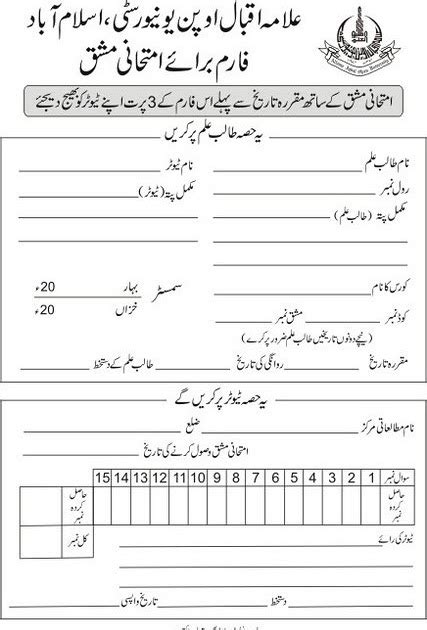 علامہ اقبال اوپن یونیورسٹی، اسلام آباد
فارم برائے امتحانی مشق
امتحانی مشق کے ساتھ مقررہ تاریخ سے پہلے اس فارم کے 3 پرت اپنے ٹیوٹر کو بھیج دیجئے
یہ حصہ طالب علم پر کریں
نام طالب علم
نام ٹیوٹر
رول نمبر
مکمل پتہ (ٹیوٹر)
مکمل پتہ (طالب علم)
کورس کا نام
سمسٹر بہار 20ء
خزاں 20ء
کوڈ نمبر مشق نمبر
(نیچے دونوں تاریخیں طالب علم ضرور پر کرے)
مقررہ تاریخ روانگی کی تاریخ طالب علم کے دستخط
یہ حصہ ٹیوٹر پر کریں گے
نام مطالعاتی مرکز ضلع
امتحانی مشق وصول کرنے کی تاریخ
سوال نمبر 1 2 3 4 5 6 7 8 9 10 11 12 13 14 15
حاصل کردہ نمبر
حاصل کردہ نمبر
کل نمبر
ٹیوٹر کی رائے
دستخط تاریخ واپسی